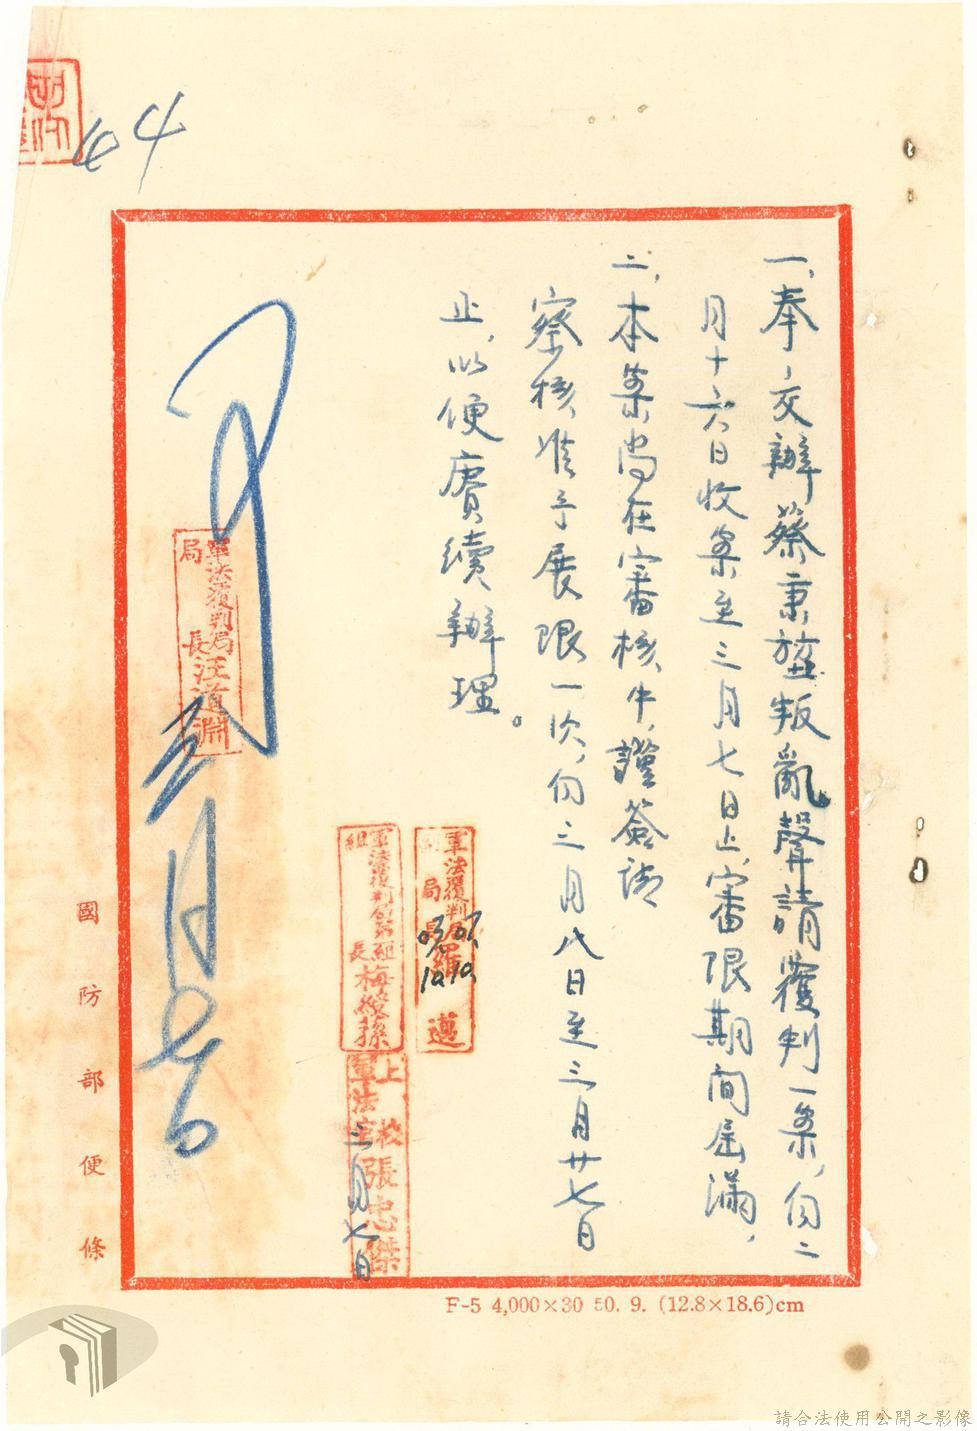 44
一、奉交辦蔡秉堃叛亂聲請覆判一案，自二
月十六日收案至三月七日止，審限期間屆滿，
二、本案尚在審核中，謹簽請
察核准予展限一次，自三月八日至三月廿七日
止，以便賡續辦理。
軍法覆判局副局長羅邁
03/07
1010
軍法覆判局組長梅綬蓀
上校軍法官張忠傑
三月七日
軍法覆判局局長汪道淵
可
三月七日
國防部便條
F-5 4,000×30 50. 9. (12.8×18.6)cm
請合法使用公開之影像